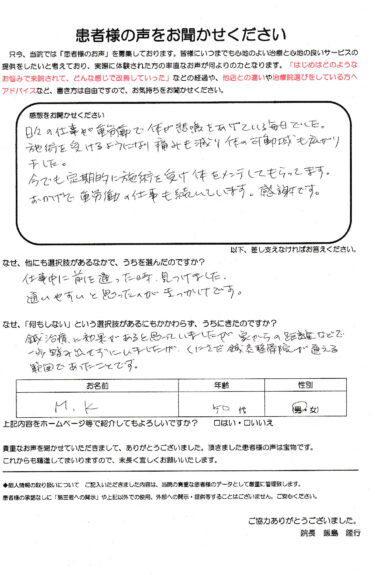 患者様の声をお聞かせください
只今、当院では「患者様のお声」を募集しております。皆様にいつまでも心地のよい治療と心地の良いサービスの
提供をしたいと考えており、実際に体験された方の率直なお声が何よりの力となります。「はじめはどのような
お悩みで来院されて、どんな感じで改善していった」などの経過や、他店との違いや治療院選びをしている方へ
アドバイスなど、書き方は自由ですので、お気持ちをお聞かせください。
感想をお聞かせください
日々の仕事や重労働で体が悲鳴をあげている毎日でした。
施術を受けるようになり痛みも減り体の可動域も広がり
ました。
今でも定期的に施術を受け体をメンテしてもらってます。
おかげで重労働の仕事も続いています。感謝です。
以下、差し支えなければお答えください。
なぜ、他にも選択肢があるなかで、うちを選んだのですか?
仕事中に前を通った時、見つけました。
通いやすいと思ったのがきっかけです。
なぜ、「何もしない」という選択肢があるにもかかわらず、うちにきたのですか?
鍼治療に効果があると思っていましたが 家からの距離などで
一歩踏み出せずにいましたが、くにさだ鍼灸整骨院が通える
範囲であったことです。
お名前 年齢 性別
M.K 50代 男・女
上記内容をホームページ等で紹介してもよろしいですか? □はい・□いいえ
貴重なお声を聞かせていただきまして、ありがとうございました。頂きました患者様の声は宝物です。
これからも精進してまいりますので、末長く宜しくお願いいたします。
◆個人情報の取り扱いについて ご記入いただきました内容は、当院の貴重な患者様のデータとして厳重に管理致します。
患者様の承諾なしに「第三者への開示」や上記以外での使用、外部への開示・提供等することはございません。ご安心ください。
ご協力ありがとうございました。
院長 飯島 隆行